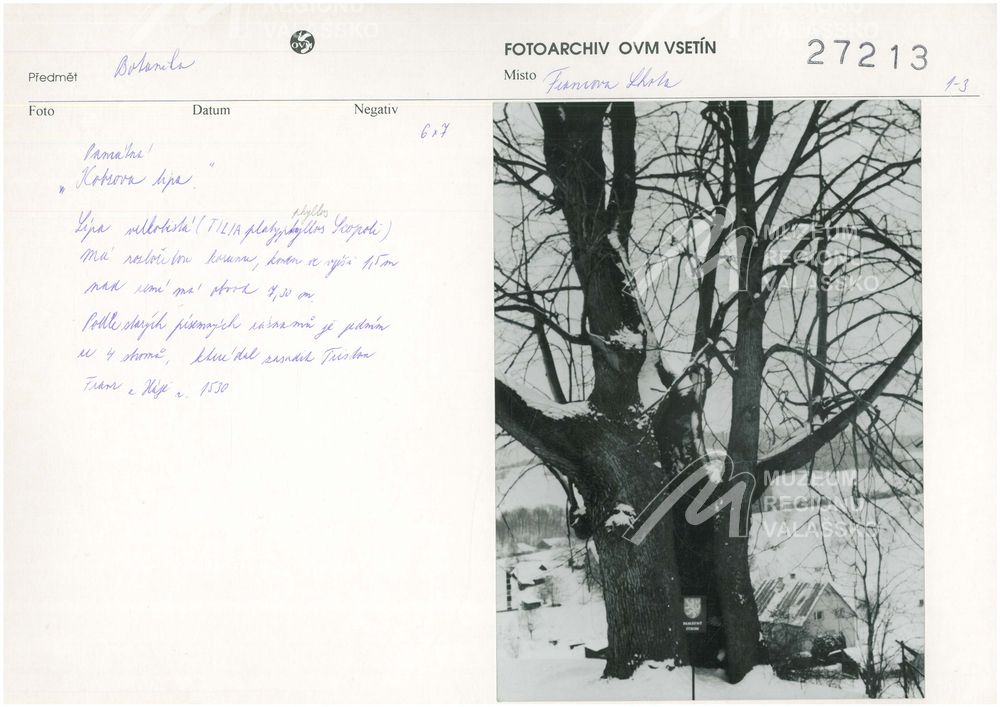 OVM
FOTOARCHIV OVM VSETÍN
27213
Předmět Botanika
Místo Francova Lhota
1-3
Foto Datum Negativ
6x7
Památná
"Kobzova lipa."
phyllos
Lípa velkolistá (TILIA platyphyllos Scopoli)
Má rozložitou korunu, kmen ve výši 1,5 m
nad zemí má obvod 7,30 m.
Podle starých písemných záznamů je jedním
ze 4 stromů, které dal zasadit
Franz z Háje r. 1530
PAMÁTNÝ
STROM
MUZEUM
REGIONU
VALAŠSKO
MUZEUM
REGIONU
VALAŠSKO